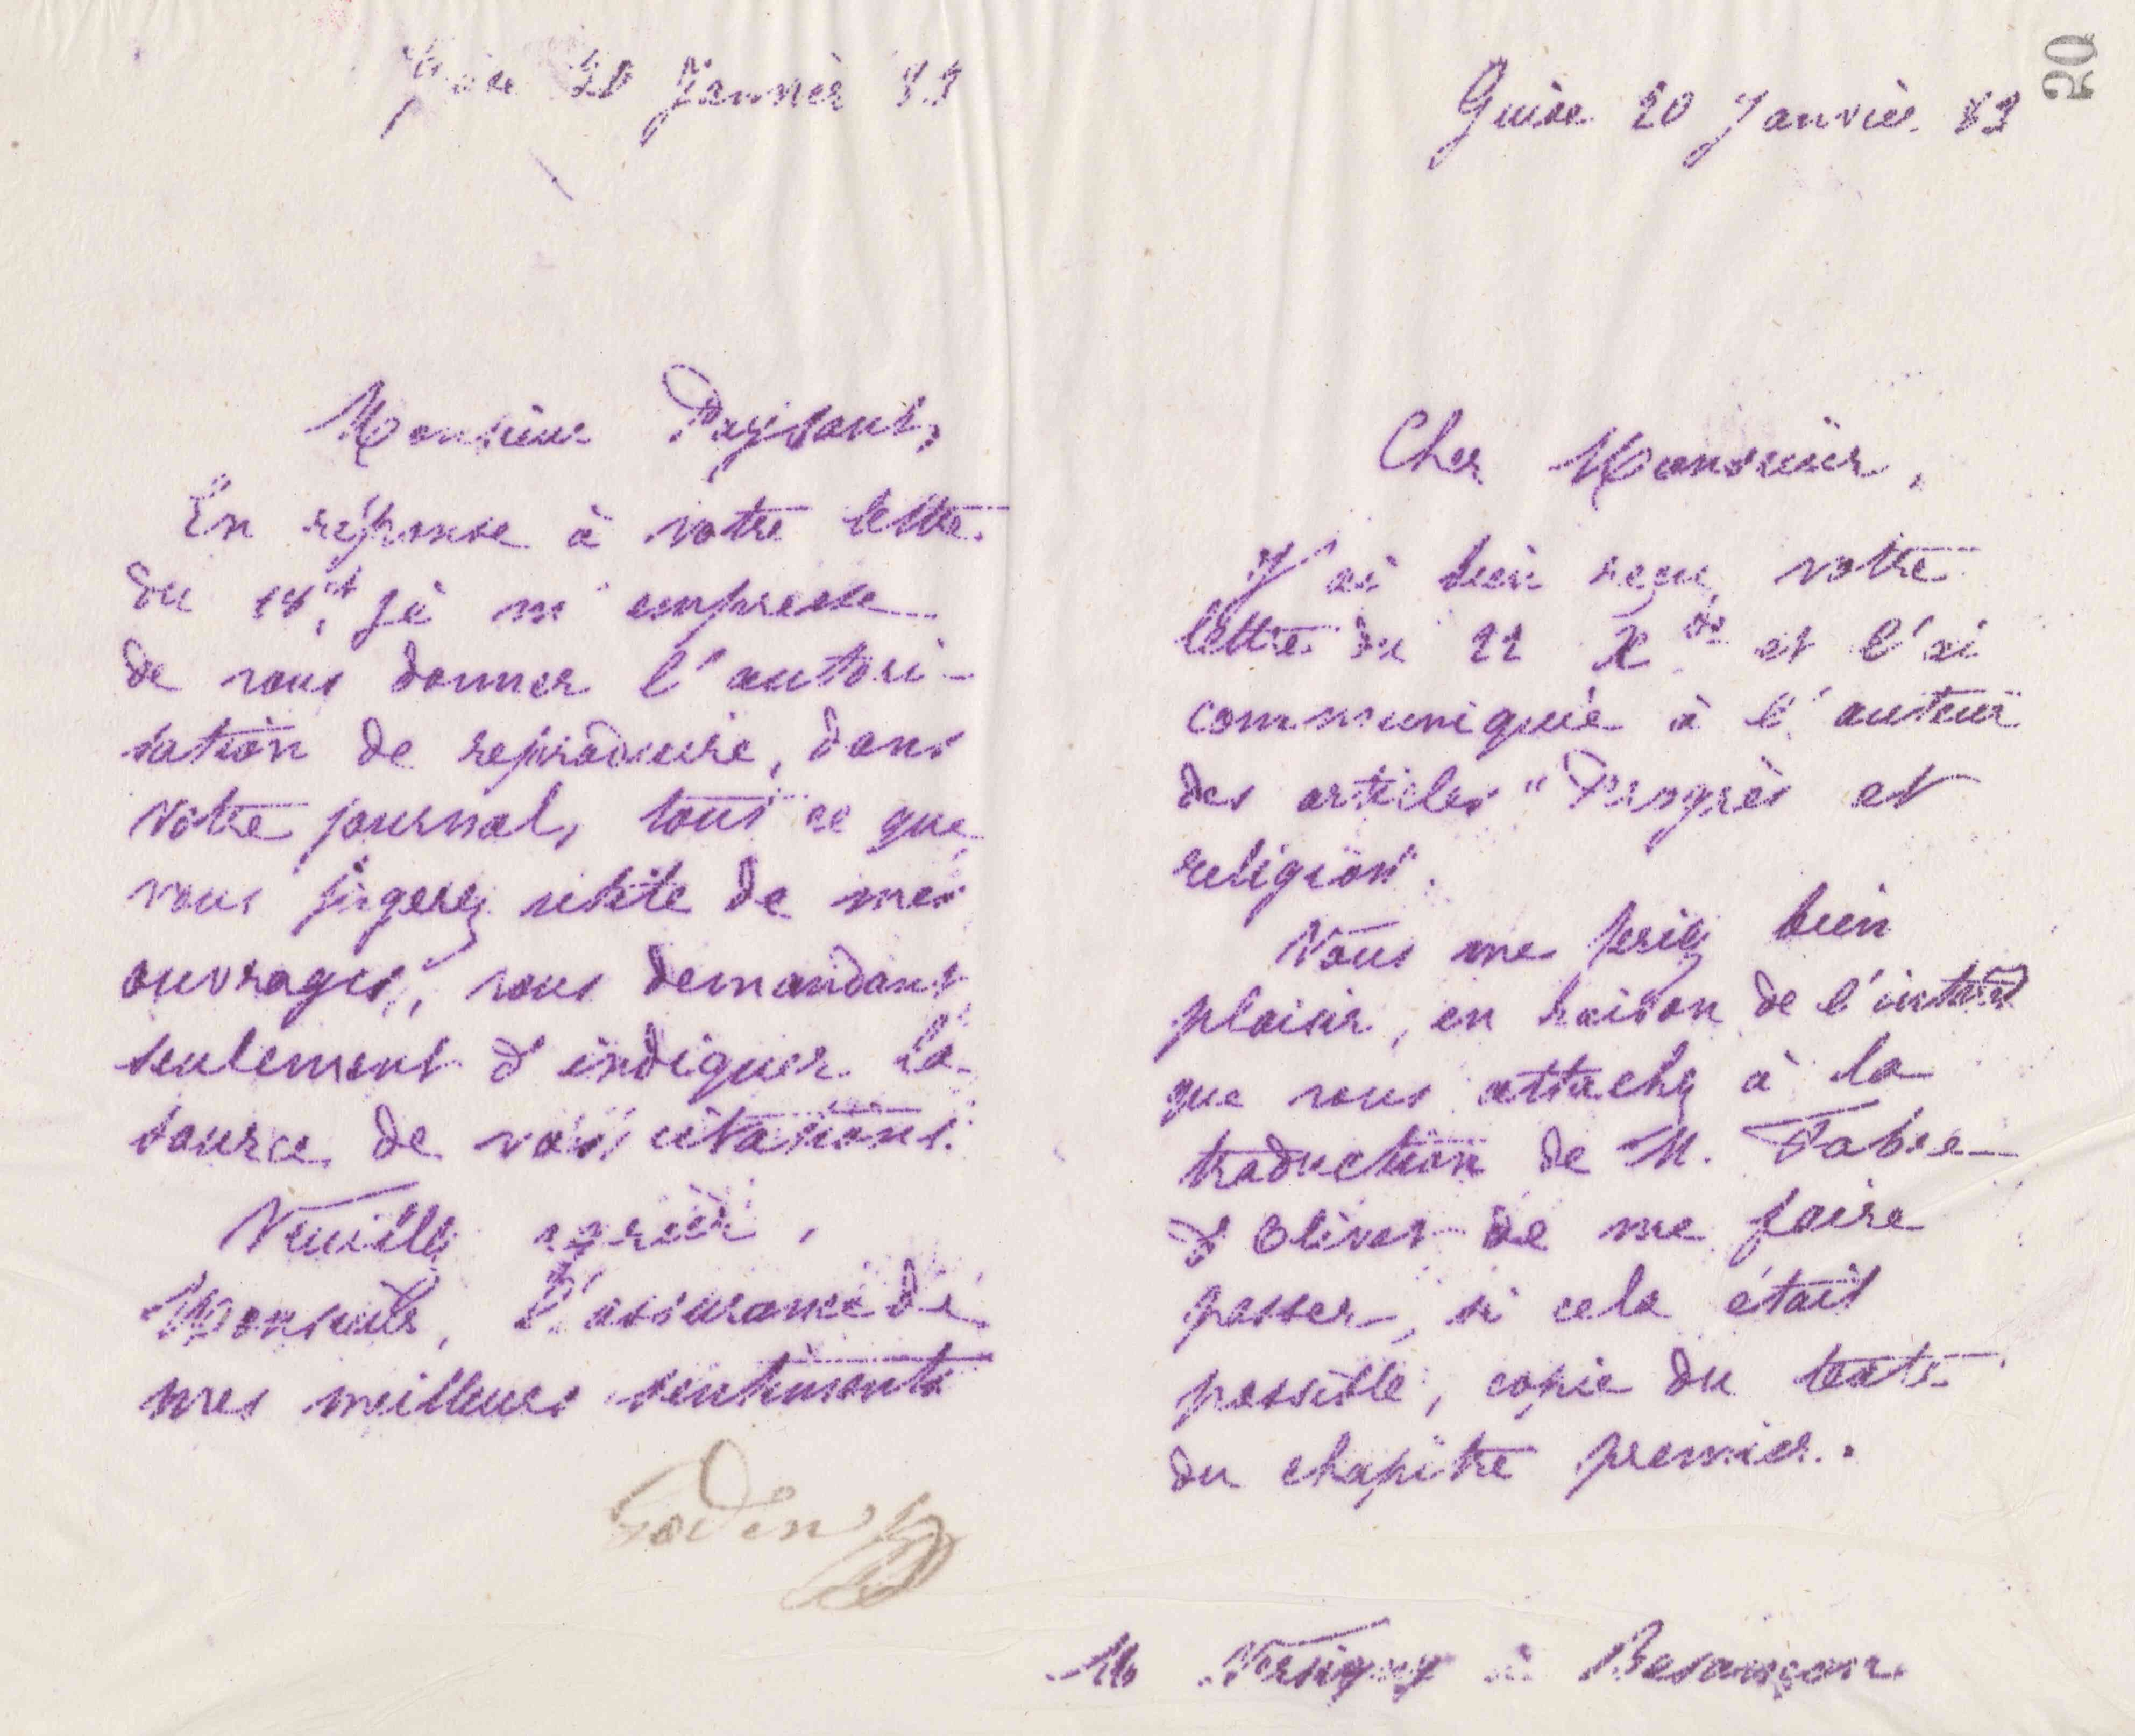 Guise 20 Janvier 83
Monsieur Payisant,
En réponse à votre lettre
du 18 ct, je m'empresse
de vous donner l'autori-
sation de reproduire, dans
votre journal, tout ce que
vous jugerez utile de mes
ouvrages, vous demandant
seulement d'indiquer la
source de vos citations.
Veuillez agréer,
Monsieur, l'assurance de
mes meilleurs sentiments
Godin
20
Guise 20 Janvier 83
Cher Monsieur,
J'ai bien reçu votre
lettre du 22 Xbre et l'ai
communiquée à l'auteur
des articles "Progrès et
religion".
Vous me feriez bien
plaisir, en raison de l'intérêt
que vous attachez à la
traduction de M. Fabre
d'Olivet de me faire
passer, si cela était
possible, copie du texte
du chapitre premier.
M Versigny à Besançon